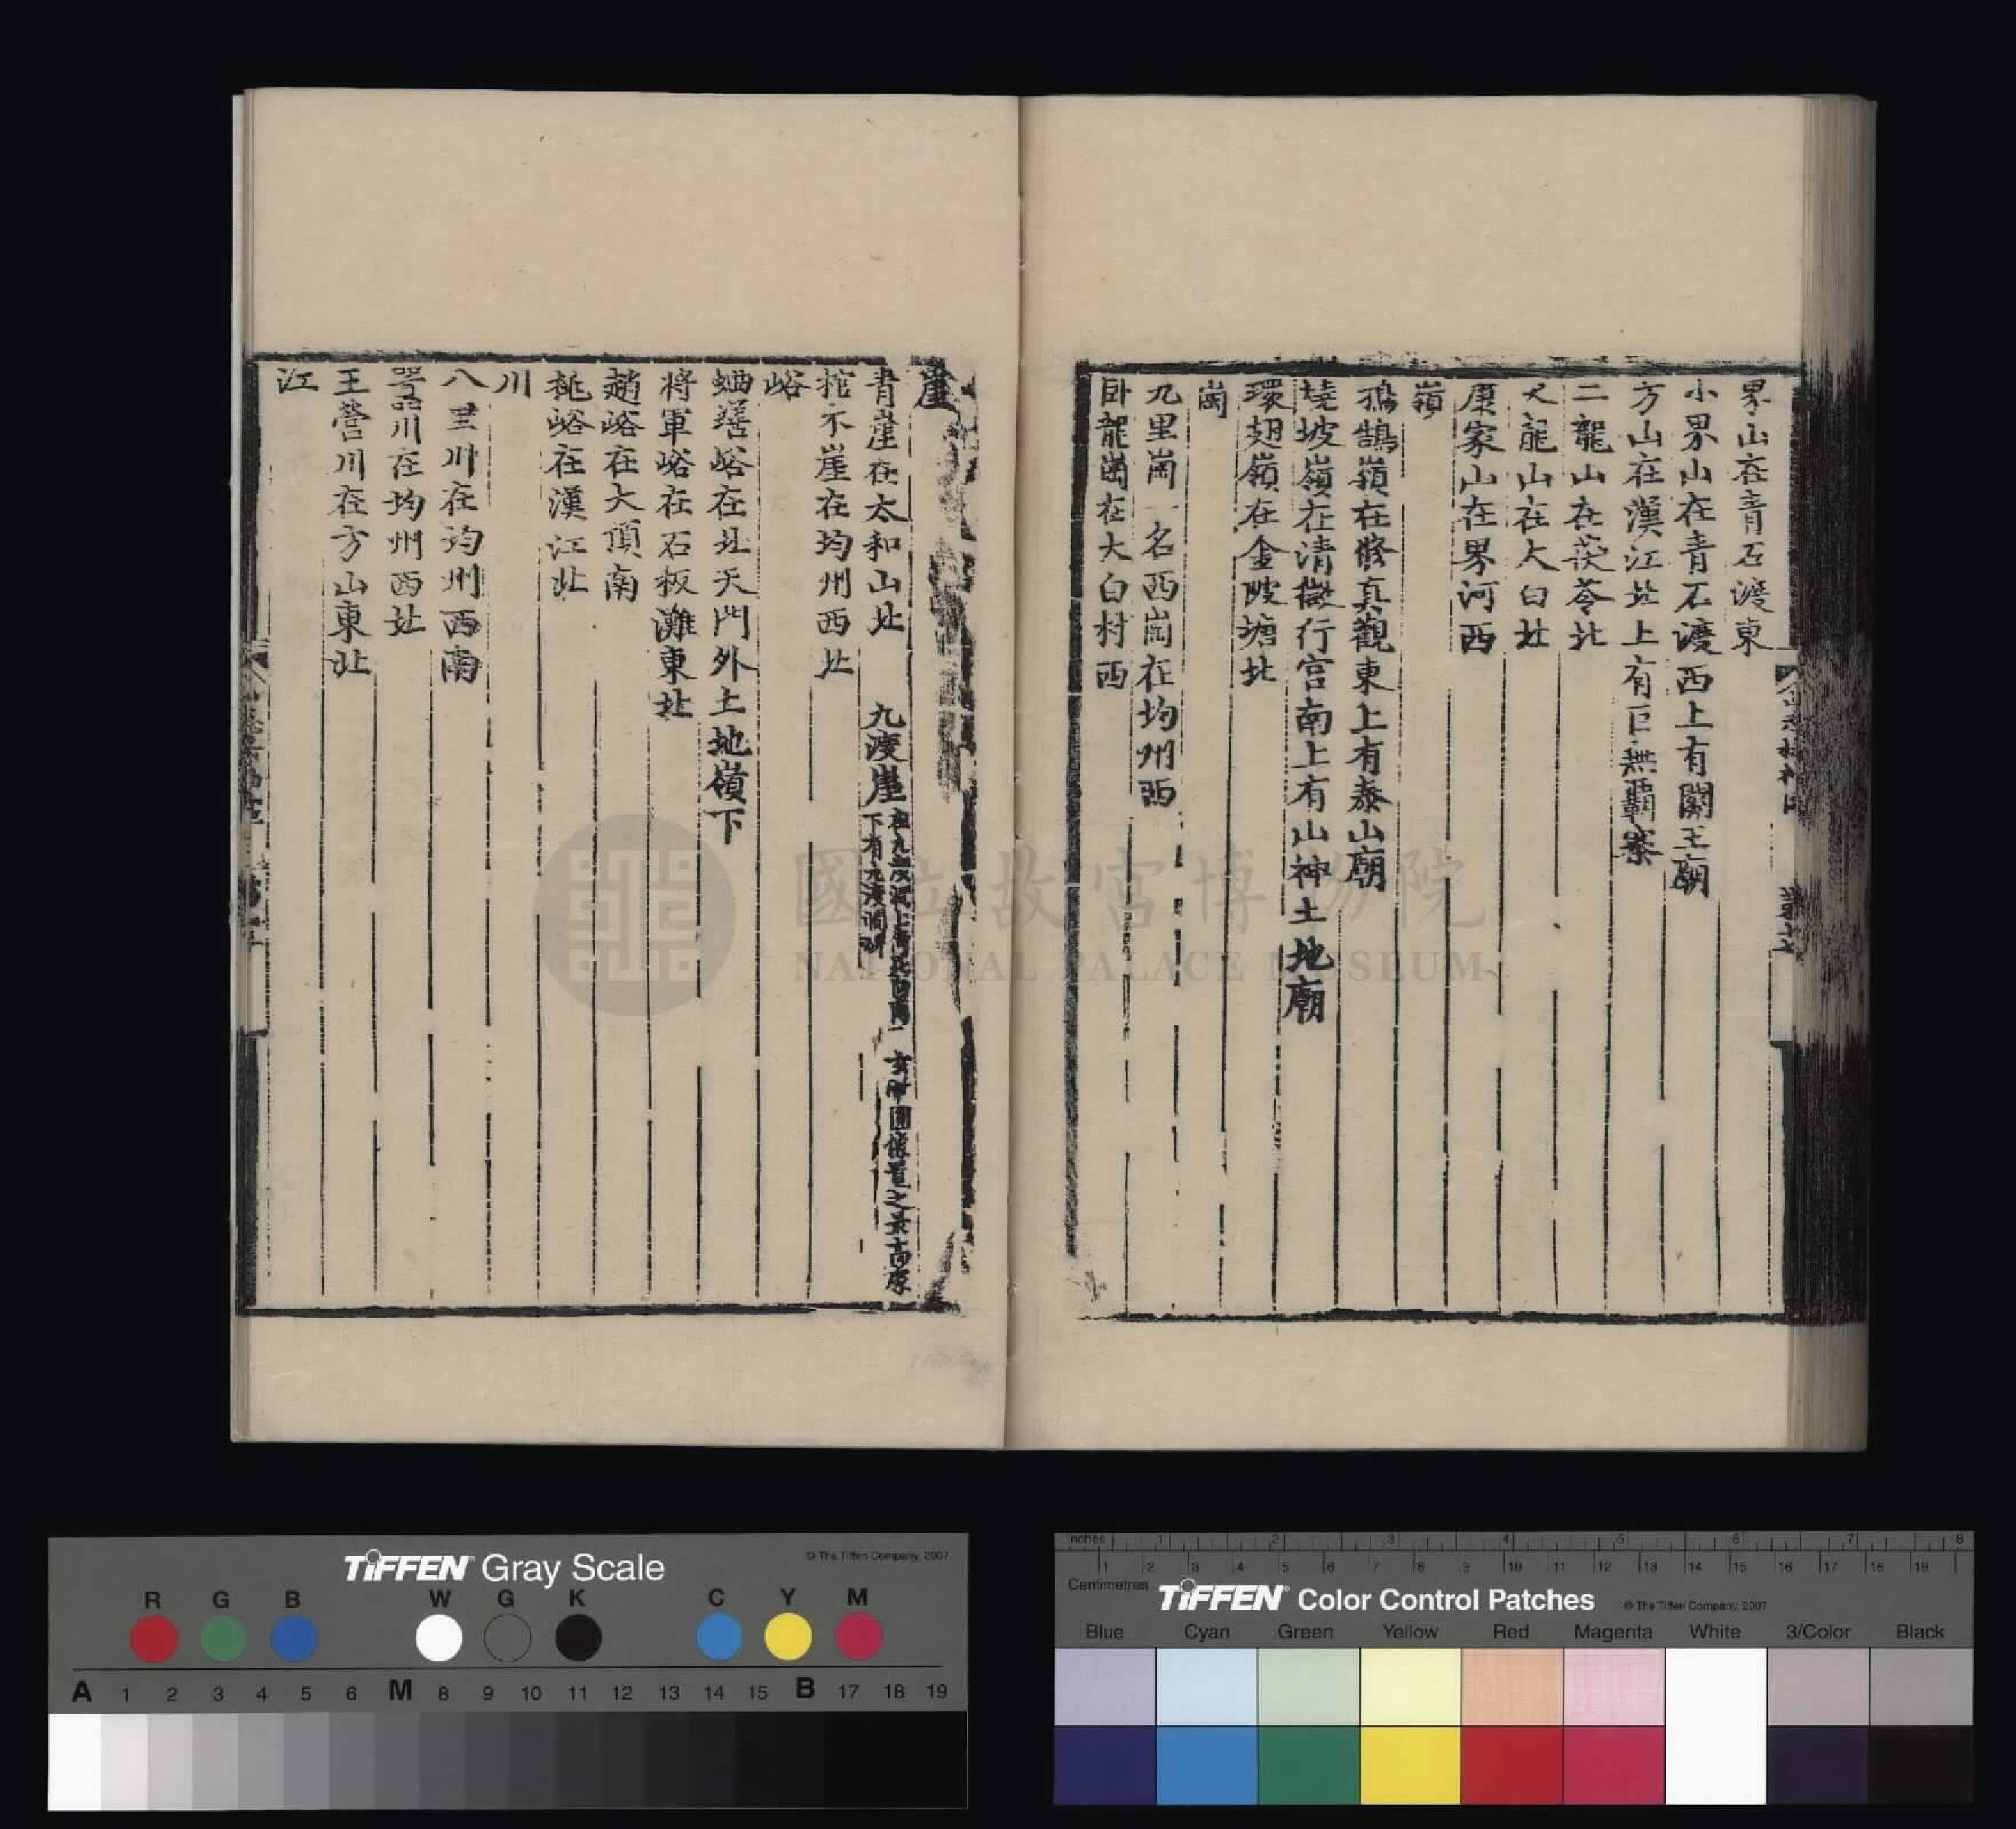 界山在青石渡東
小界山在青石渡西上有關王廟
方山在漢江北上有巨無霸寨
二龍山在茯苓北
大龍山在大白北
康家山在界河西
嶺
鴉鵠嶺在修真觀東上有泰山廟
境坡嶺在清微行宮南上有山神土地廟
環翅嶺在金陂塘北
崗
九里崗一名西崗在均州西
卧龍崗在大白村西
崖
青崖在太和山北 九渡崖
下有九渡澗碑
玄帝圖像置之最高處
棺木崖在均州西北
峪
蛐蟮峪在北天門外土地嶺下
將軍峪在石板灘東北
趙峪在大頂南
桃峪在漢江北
川
八里川在均州西南
川在均州西北
王營川在方山東北
江
國立故宮博物院
NATIONAL PALACE MUSEUM
TIFFEN Gray Scale
© The Tiffen Company, 2007
R G B W G K C Y M
A 1 2 3 4 5 6 M 8 9 10 11 12 13 14 15 B 17 18 19
Inches 1 2 3 4 5 6 7 8
Centimetres 1 2 3 4 5 6 7 8 9 10 11 12 13 14 15 16 17 18 19
TIFFEN Color Control Patches
© The Tiffen Company, 2007
Blue Cyan Green Yellow Red Magenta White 3/Color Black